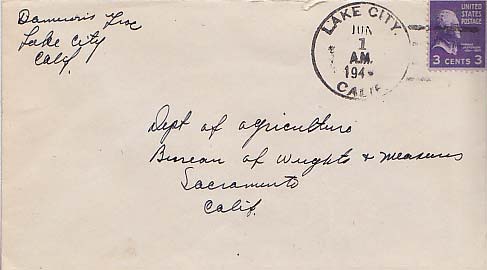 Lake City
Calif.
LAKE CITY.
JUN
1
A.M.
194
CALIF.
UNITED
STATES
POSTAGE
3 CENTS 3
Dept of agriculture
Bureau of Weights & measures
Sacramento
Calif.